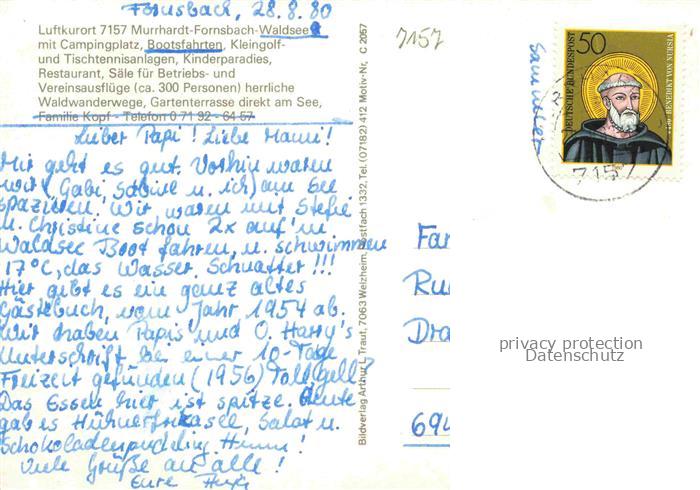 Fornsbach, 28.8.80
Luftkurort 7157 Murrhardt-Fornsbach-Waldsee
mit Campingplatz, Bootsfahrten, Kleingolf-
und Tischtennisanlagen, Kinderparadies,
Restaurant, Säle für Betriebs- und
Vereinsausflüge (ca. 300 Personen) herrliche
Waldwanderwege, Gartenterrasse direkt am See,
Familie Kopf - Telefon 0 71 92 - 64 57
Lieber Papi! Liebe Mami!
Mir geht es gut. Vorhin waren
wir (Gabi, Sabine u. ich) am See
spazieren. Wir waren mit Stefie
u. Christine schon 2x auf'm
Waldsee Boot fahren, u. schwimmen
17°C, das Wasser. Schnatter!!!
Hier gibt es ein ganz altes
Gästebuch, vom Jahr 1954 ab.
Wir haben Papis und O. Harry's
Unterschrift bei einer 10-Tage
Freizeit gefunden (1956) Toll gell?
Das Essen hier ist spitze. Heute
gab es Hühnerfrikasee, Salat u.
Schokoladenpudding. Hmm!
Viele Grüße an alle!
Eure
Bildverlag Arthur Traut, 7063 Welzheim, Postfach 1332, Tel. (07182) 412 Motiv-Nr. C 2057
7157
Sammler
50
DEUTSCHE BUNDESPOST
BENEDIKT VON NURSIA
7157
Fam
Ru
Dra
694
privacy protection
Datenschutz